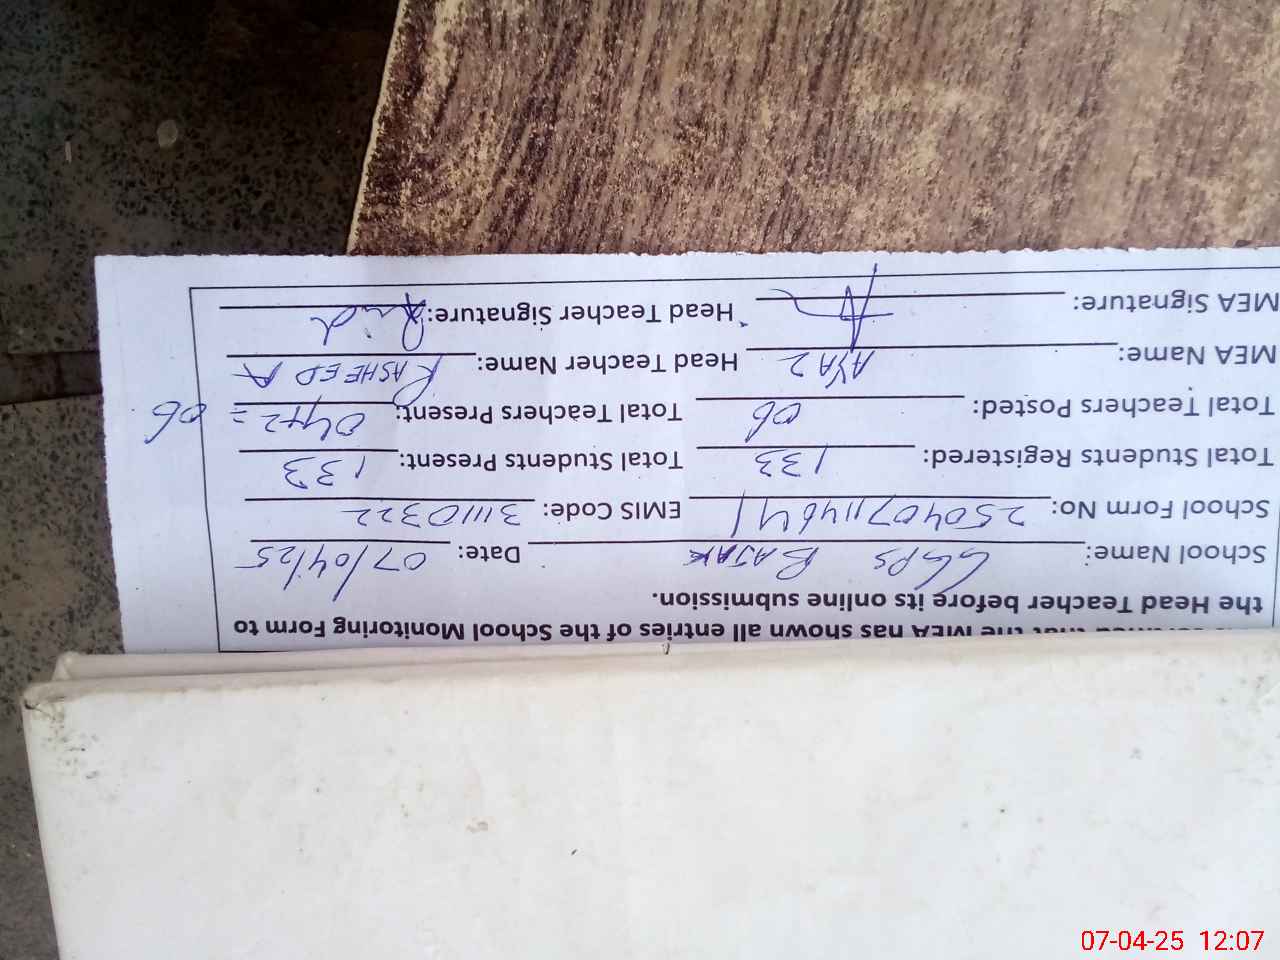 the Head Teacher before its online submission.
has shown all entries of the School Monitoring Form to
School Name: GGPS BAJAK Date: 07/04/25
School Form No: 250407114641 EMIS Code: 31110322
Total Students Registered: 133 Total Students Present: 133
Total Teachers Posted: 06 Total Teachers Present: 04+2 = 06
MEA Name: Head Teacher Name: RASHEEDA
MEA Signature: Head Teacher Signature:
07-04-25 12:07